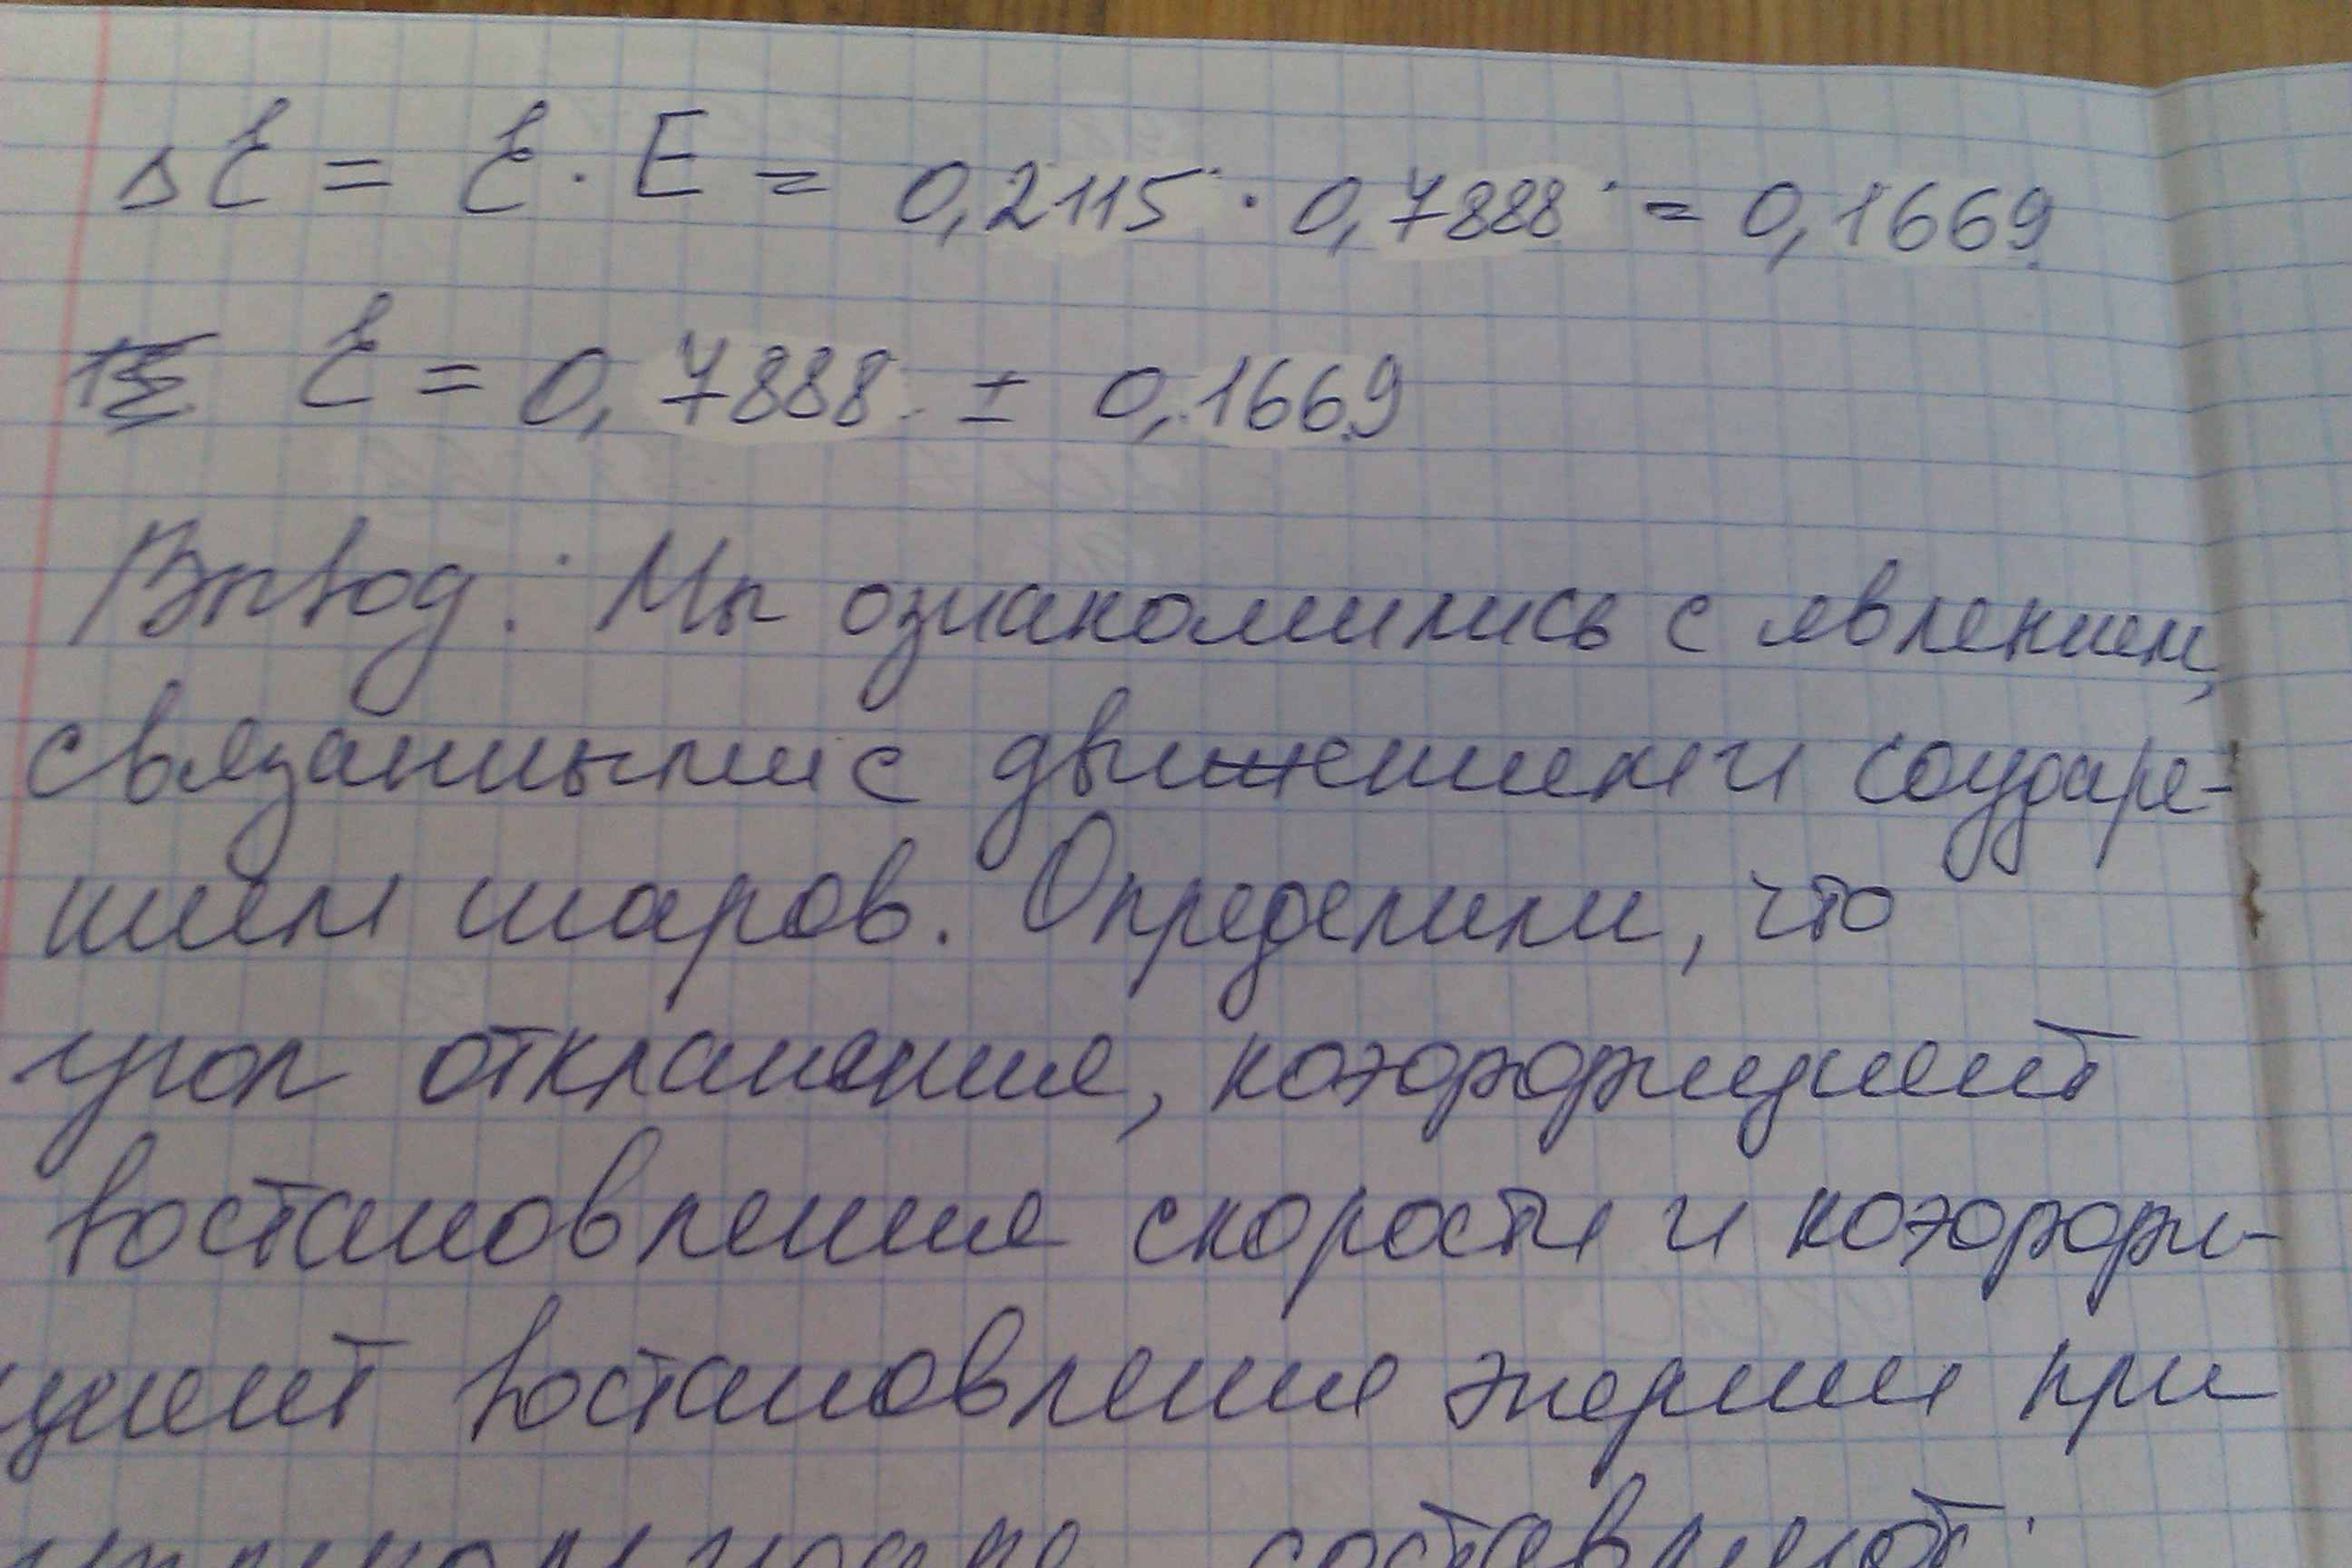 Δξ = ξ · E = 0,2115 · 0,7888 = 0,1669
ξ = 0,7888 ± 0,1669
Вывод: Мы ознакомились с явлением,
связанными с движением и соударе-
нием шаров. Определили, что
угол отклонения, коэффициент
востановление скорости и коэффи-
циент востановления энергии при
составляют: